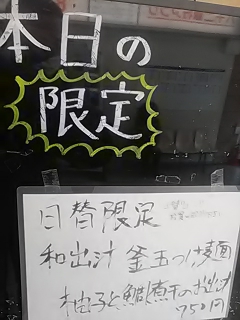 本日の
限定
日替限定
和出汁 釜玉つけ麺
柚子と鯛煮干のお出汁
750円